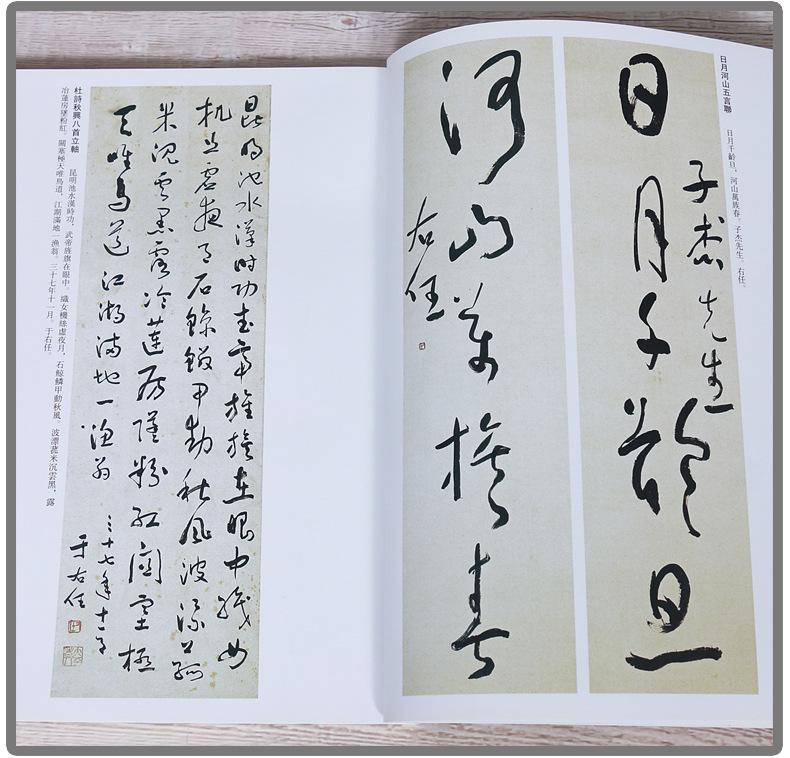 日月河山五言聯
日月千齡旦，河山萬族春。子杰先生。右任。
子杰先生
日月千齡旦
河山萬族春
右任
昆明池水漢時功武帝旌旗在眼中織女
机絲虛夜月石鯨鱗甲動秋風波漂菰
米沉雲黑露冷蓮房墜粉紅關塞極
天唯鳥道江湖滿地一漁翁
三十七年十一月
于右任
杜詩秋興八首立軸
昆明池水漢時功，武帝旌旗在眼中。織女機絲虛夜月，石鯨鱗甲動秋風。波漂菰米沉雲黑，露
冷蓮房墜粉紅。關塞極天唯鳥道，江湖滿地一漁翁。三十七年十一月。于右任。